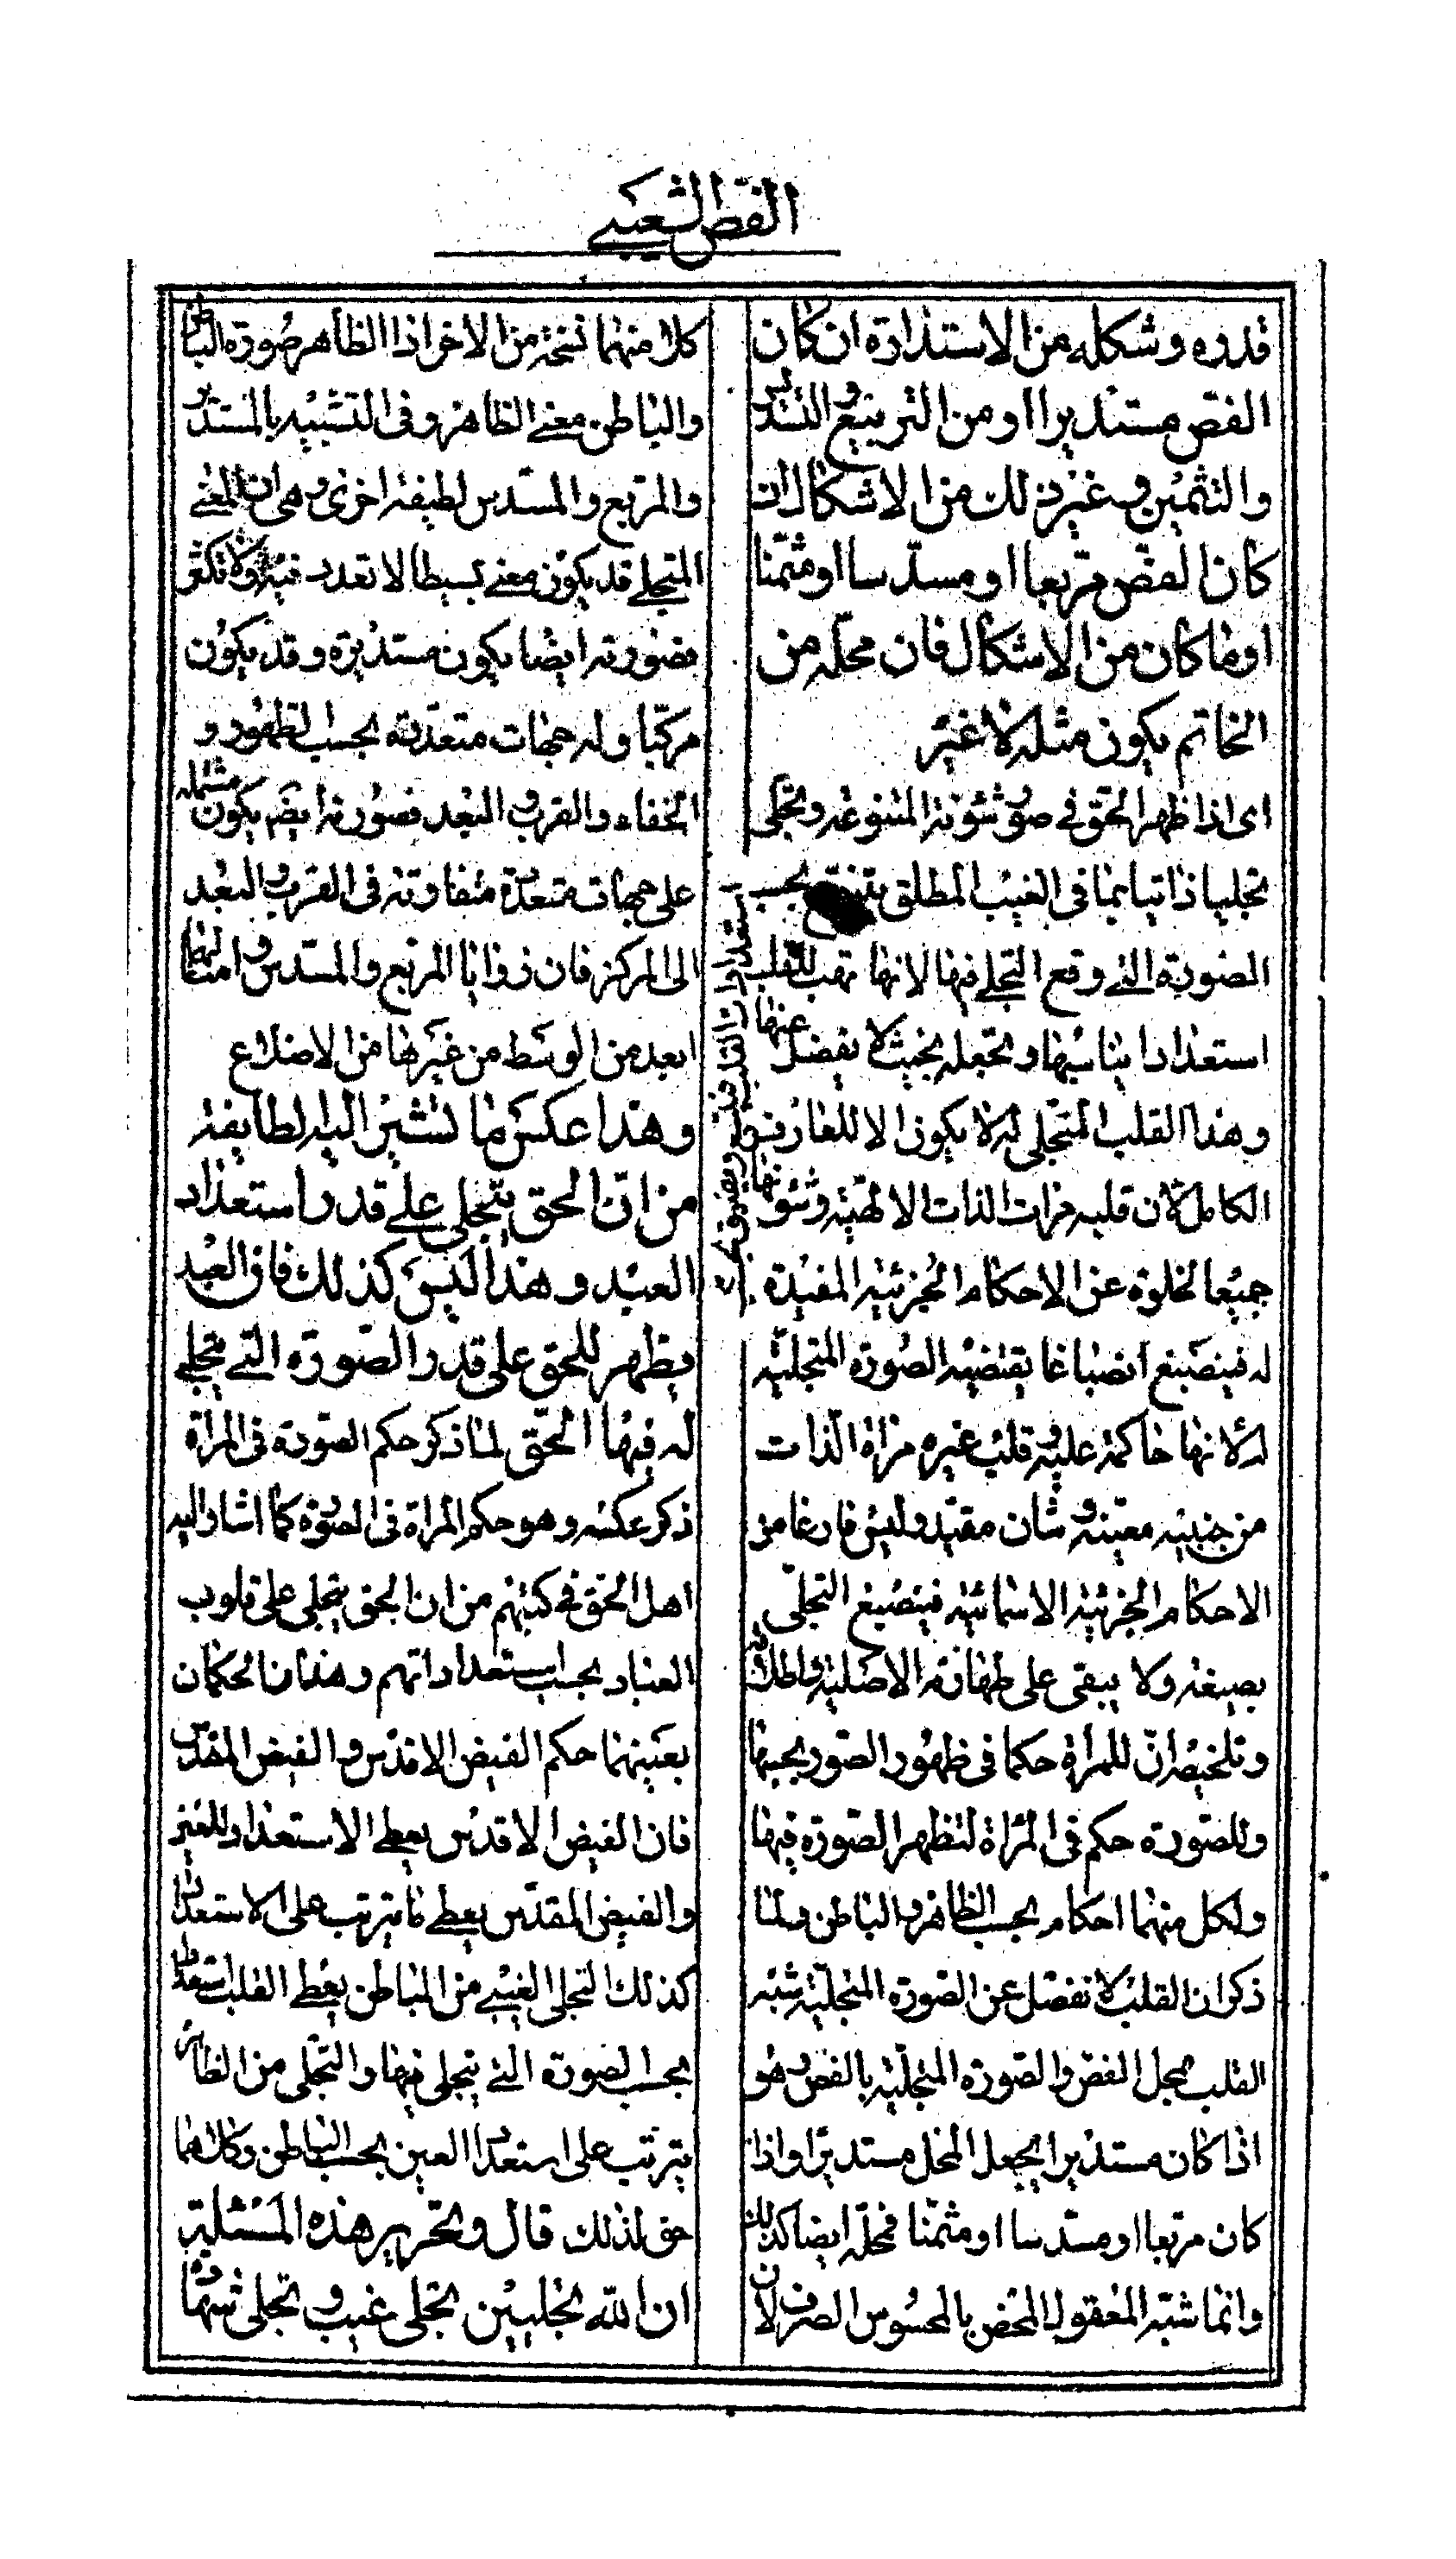 الفص الشعيبي
قدره وشكله من الاستدارة ان كان
الفص مستديرا او من التربيع والتسديس
والتثمين وغير ذلك من الاشكال ان
كان الفص مربعا او مسدسا او مثمنا
او ما كان من الاشكال فان محله من
الخاتم يكون مثله لا غير
اى اذا ظهر الحق في صور شئونه المتنوعه وتجلى
تجليا ذاتيا بما فى الغيب المطلق يتنوع بحسب
الصورة التي وقع التجلي فيها لانها تهب للقلب
استعدادا يناسبها وتجعله بحيث لا يفضل عنها
وهذا القلب المتجلى له لا يكون الا للعارف
الكامل لان قلبه مرات الذات الالهية وشئونها
جميعا لخلوه عن الاحكام الجزئية المقيدة
له فينصبغ انصباغا يقتضيه الصورة المتجلية
له لانها حاكمة عليه وقلب غيره مراة الذات
من حيثيه معينة وشان مقيد وليس فارغا من
الاحكام الجزئية الاسمائية فينصبغ التجلى
بصبغه ولا يبقى على طهارته الاصلية واطلاقه
وتلخيصه ان للمراة حكما فى ظهور الصور بحسبها
وللصورة حكم فى المراة لتظهر الصورة فيها
ولكل منهما احكام بحسب الظاهر والباطن ولما
ذكر ان القلب لا تفضل عن الصورة المتجلية شبه
القلب بمحل الفص والصورة المتجلية بالفص وهو
اذا كان مستديرا يجعل المحل مستديرا واذا
كان مربعا او مسدسا او مثمنا فمحله ايضا كذلك
وانما شبه المعقول المحض بالمحسوس الصرف لان
استعدادات القابلية
كلا منهما نسخة من الاخر اذ الظاهر صورة الباطن
والباطن معنى الظاهر وفى التشبيه بالمستدير
والمربع والمسدس لطيفة اخرى وهى ان المعنى
المتجلي قد يكون معنى بسيطا لا تعدد فيه ولا تكثر
بصورته ايضا يكون مستديرة وقد يكون
مركبا وله جهات متعددة بحسب الظهور و
الخفاء والقرب والبعد فصورته ايضه يكون مشتمله
على جهات متعددة متفاوته فى القرب والبعد
الى المركز فان زوايا المربع والمسدس وامثالهما
ابعد من الوسط من غيرها من الاضلاع
وهذا عكس ما تشير اليه الطايفة
من ان الحق يتجلى على قدر استعداد
العبد وهذا ليس كذلك فان العبد
يظهر للحق على قدر الصورة التي يتجلى
له فيها الحق لما ذكر حكم الصورة فى المراة
ذكر عكسه وهو حكم المراة فى الصورة كما اشار اليه
اهل الحق في كتبهم من ان الحق يتجلى على قلوب
العباد بحسب استعداداتهم وهذان الحكمان
بعينهما حكم الفيض الاقدس والفيض المقدس
فان الفيض الاقدس يعطى الاستعداد للعين
والفيض المقدس يعطى ما يترتب على الاستعداد
كذلك التجلى الغيبي من الباطن يعطى القلب استعدادا
بحسب الصورة التي يتجلى فيها والتجلى من الظاهر
يترتب على استعداد العين بحسب الباطن وكلاهما
حق لذلك قال وتحرير هذه المسئلة
ان لله تجليين تجلى غيب وتجلى شهادة